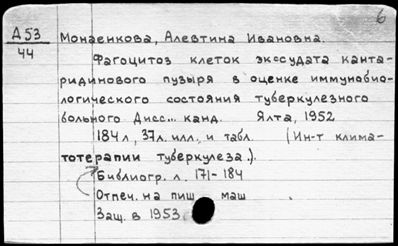 6
А53
44
Монаенкова, Алевтина Ивановна.
Фагоцитоз клеток экссудата канта-
ридинового пузыря в оценке иммунобио-
логического состояния туберкулезного
больного Дисс... канд. Ялта, 1952
184л, 37л. илл., и табл. (Ин-т клима-
тотерапии туберкулеза.).
Библиогр. л. 171-184
Отпеч. на пиш маш
Защ. в 1953